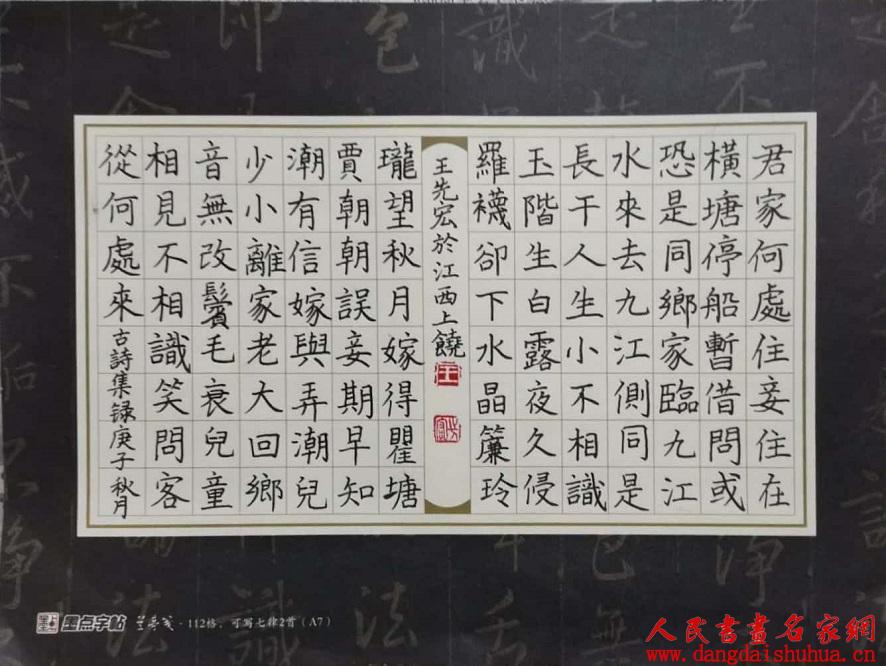 君家何處住妾住在
橫塘停船暫借問或
恐是同鄉家臨九江
水來去九江側同是
長干人生小不相識
玉階生白露夜久侵
羅襪卻下水晶簾玲
王先宏於江西上饒
瓏望秋月嫁得瞿塘
賈朝朝誤妾期早知
潮有信嫁與弄潮兒
少小離家老大回鄉
音無改鬢毛衰兒童
相見不相識笑問客
從何處來古詩集録庚子秋月
墨点字帖·112格,可写七律2首(A7)
人民書畫名家網
www.dangdaishuhua.cn